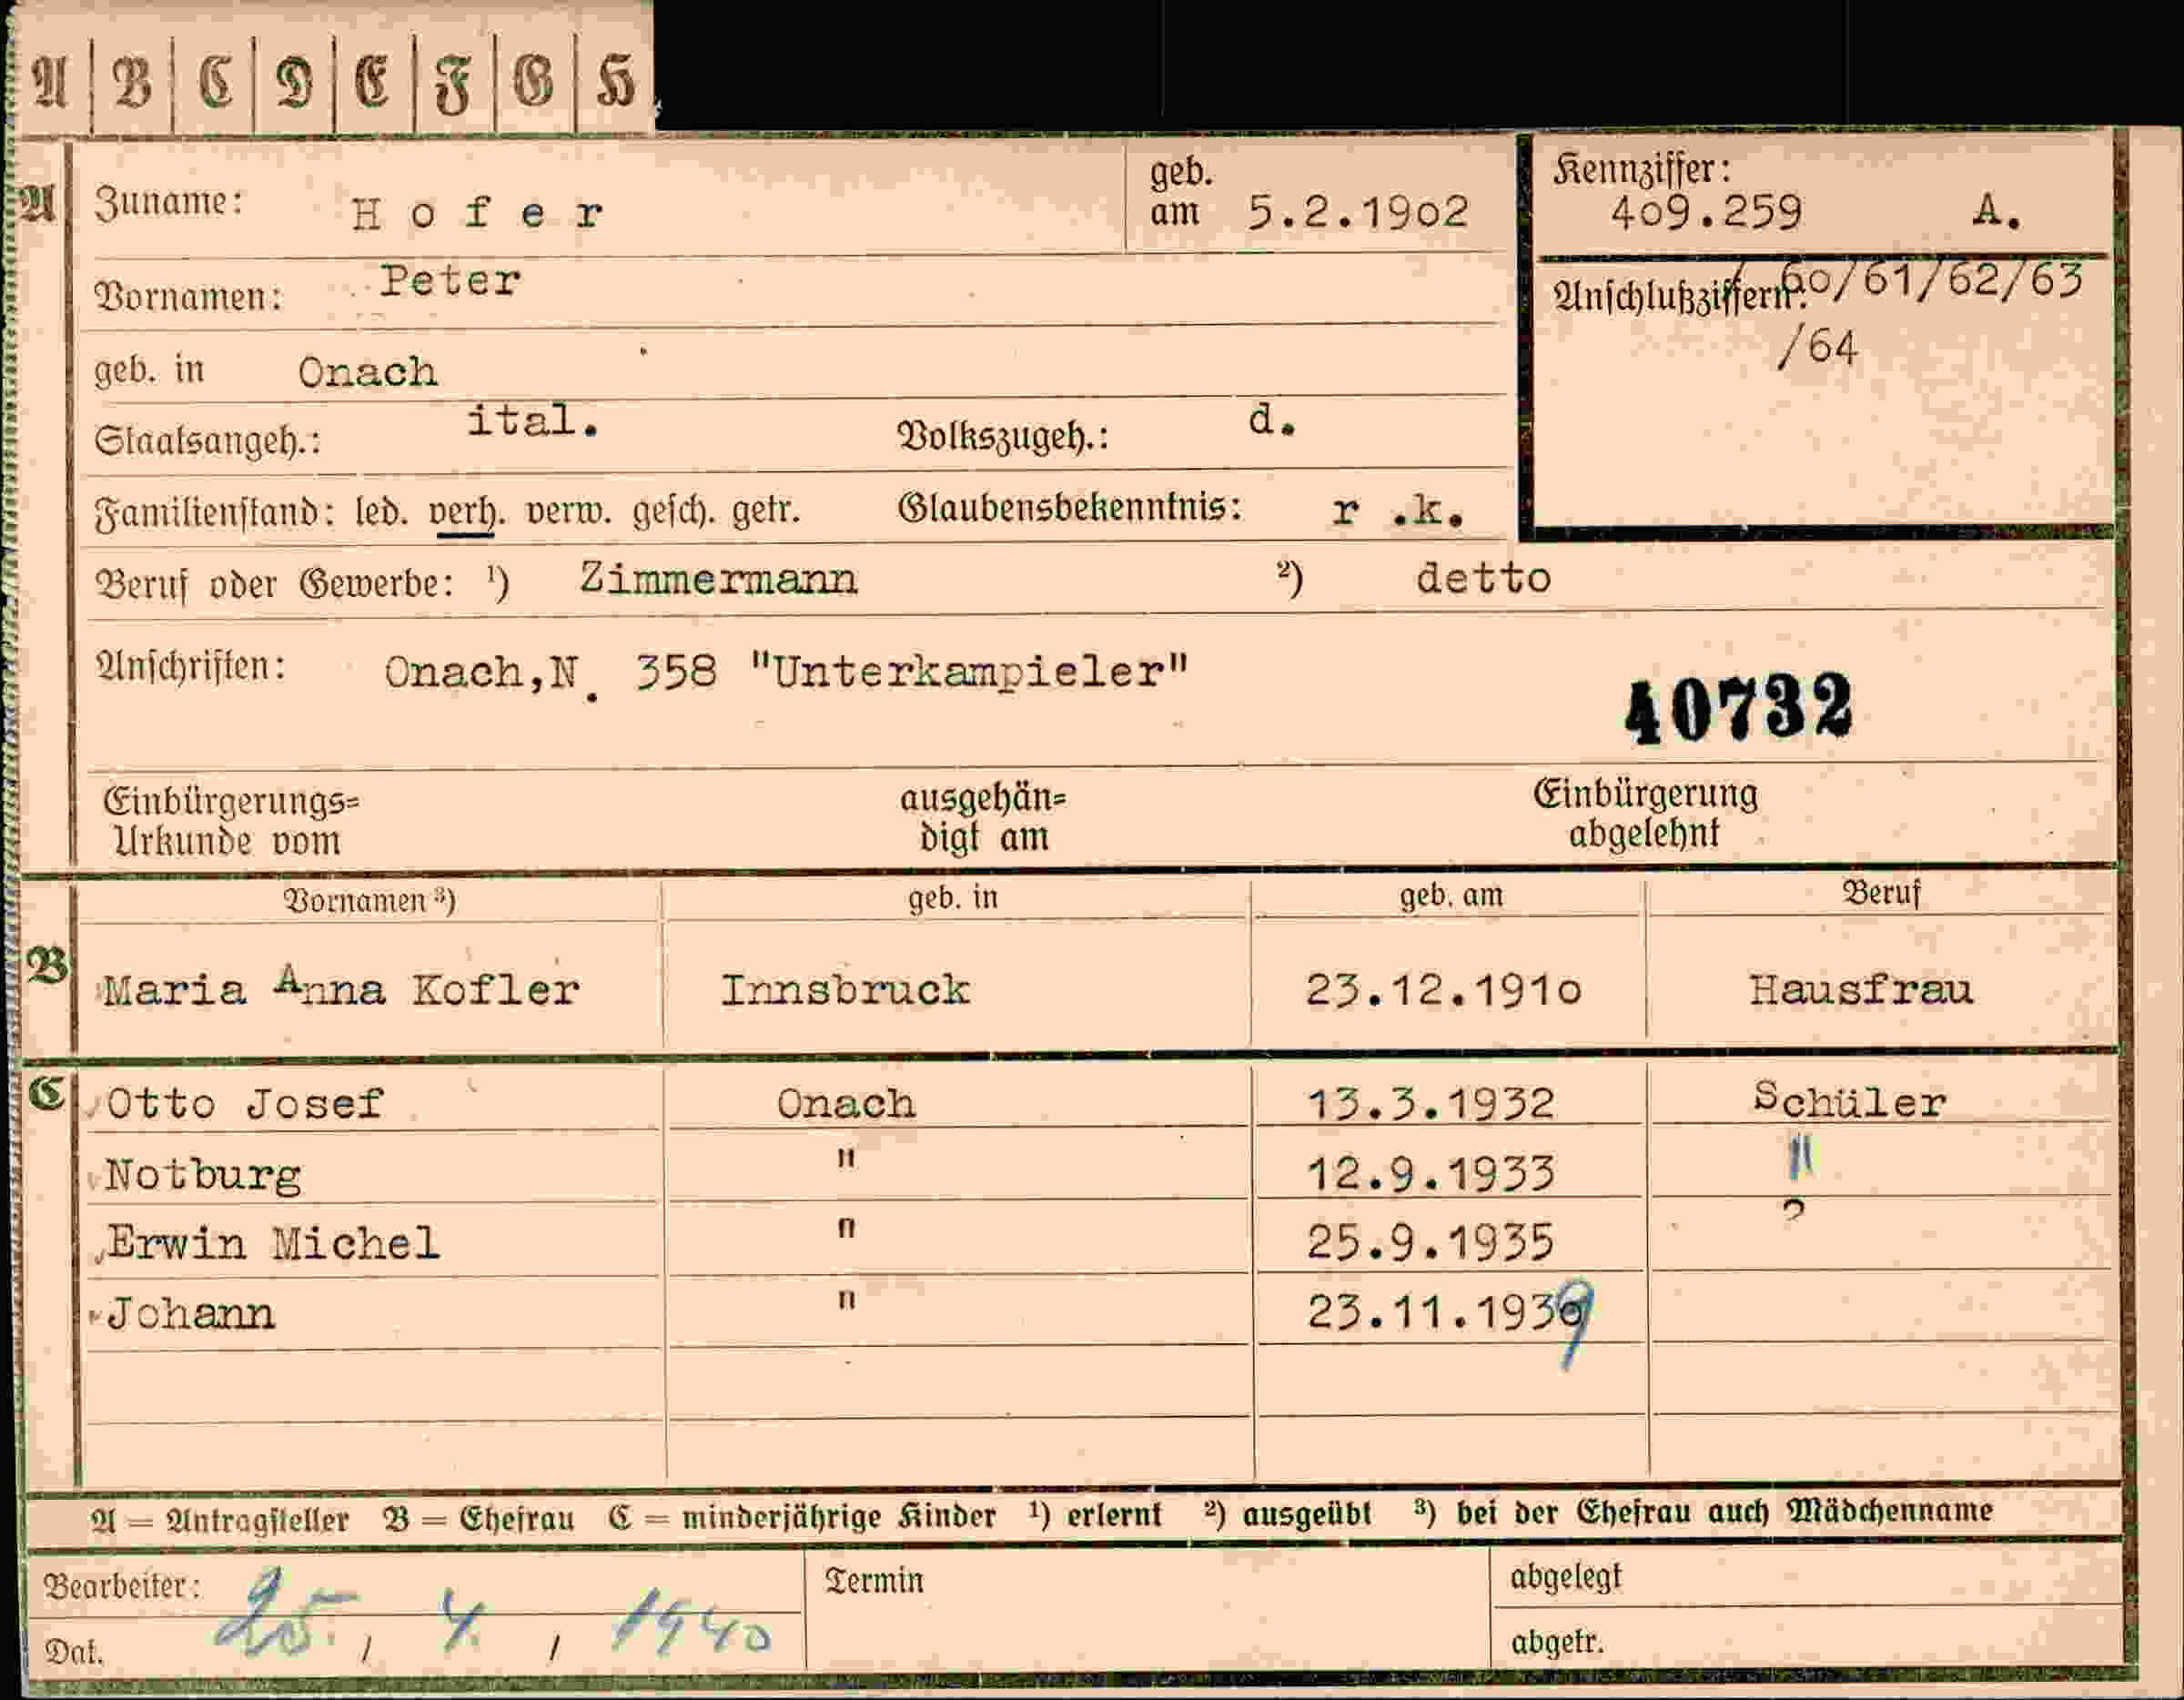 A B C D E F G H
A Zuname: Hofer geb. am 5.2.1902 Kennziffer: 409.259 A.
Vornamen: Peter Anschlußziffern: 60/61/62/63
/64
geb. in Onach
Staatsangeh.: ital. Volkszugeh.: d.
Familienstand: led. verh. verw. gesch. getr. Glaubensbekenntnis: r .k.
Beruf oder Gewerbe: ¹) Zimmermann ²) detto
Anschriften: Onach,N. 358 "Unterkampieler"
40732
Einbürgerungs= Urkunde vom ausgehän= digt am Einbürgerung abgelehnt
Vornamen ³) geb. in geb. am Beruf
B Maria Anna Kofler Innsbruck 23.12.1910 Hausfrau
C Otto Josef Onach 13.3.1932 Schüler
Notburg " 12.9.1933 "
Erwin Michel " 25.9.1935 ?
Johann " 23.11.1939
A = Antragsteller B = Ehefrau C = minderjährige Kinder ¹) erlernt ²) ausgeübt ³) bei der Ehefrau auch Mädchenname
Bearbeiter: Termin abgelegt
Dat. 25. / 4. / 1940 abgetr.